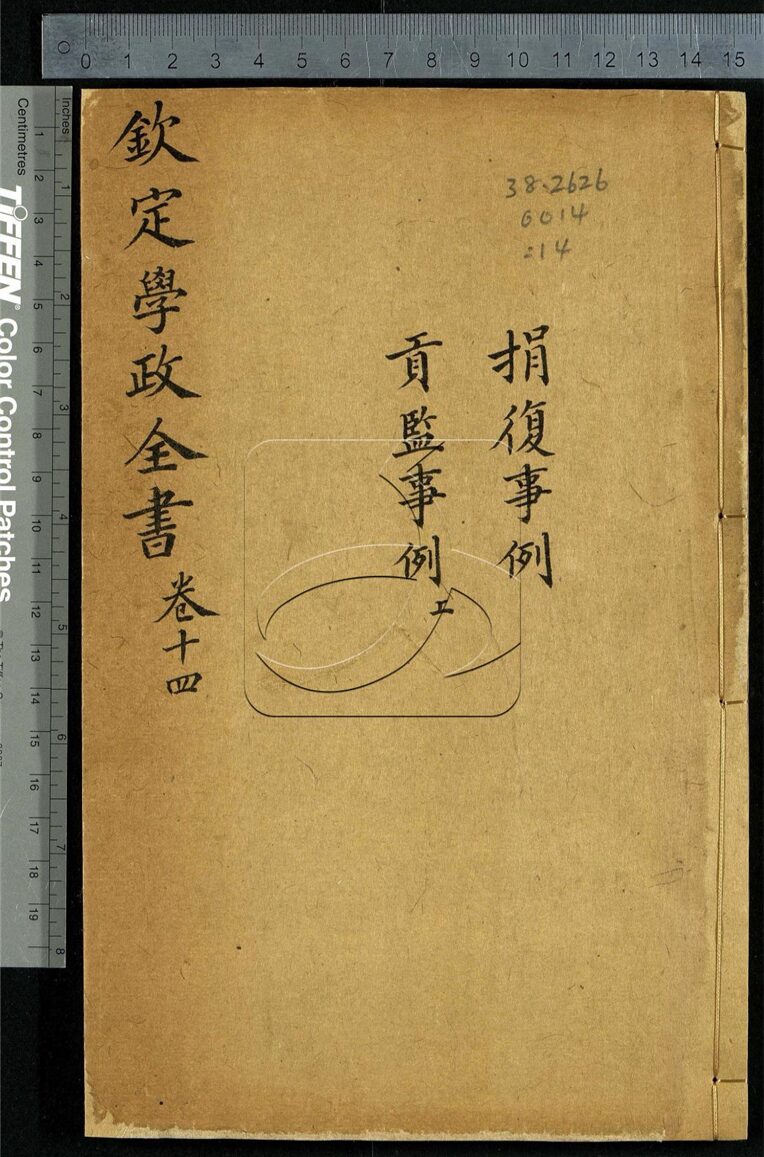 欽定學政全書 卷十四
捐復事例
貢監事例 上
38.2626
6014
:14
0 1 2 3 4 5 6 7 8 9 10 11 12 13 14 15
Inches
Centimetres
1 2 3 4 5 6 7 8
1 2 3 4 5 6 7 8 9 10 11 12 13 14 15 16 17 18 19
TIFFEN® Color Control Patches